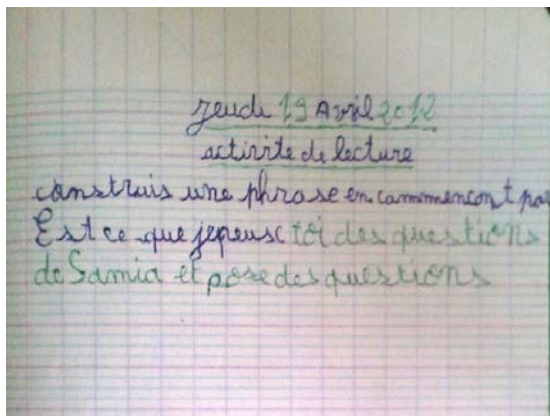 jeudi 19 Avril 2012
activite de lecture
canstruis une phrase en cammmencont pa
Est ce que je peuse toi des questions
de Samia et pose des questions